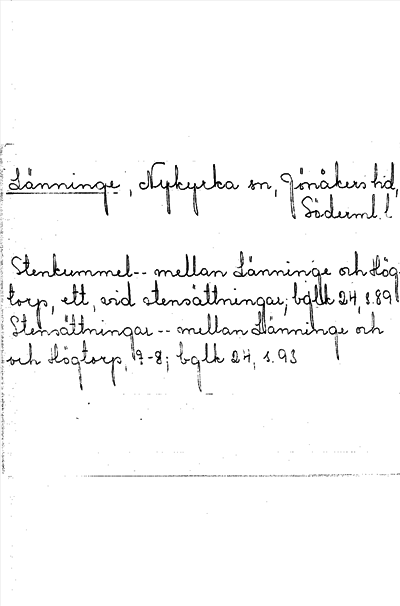 Länninge, Nykyrka sn, Jönåkers hd,
Söderml. l
Stenkummel -- mellan Länninge och Hög-
torp, ett, vid stensättningar; bglk 24, s.89
Stensättningar -- mellan Länninge och
och Högtorp, 7-8; bglk 24, s.93